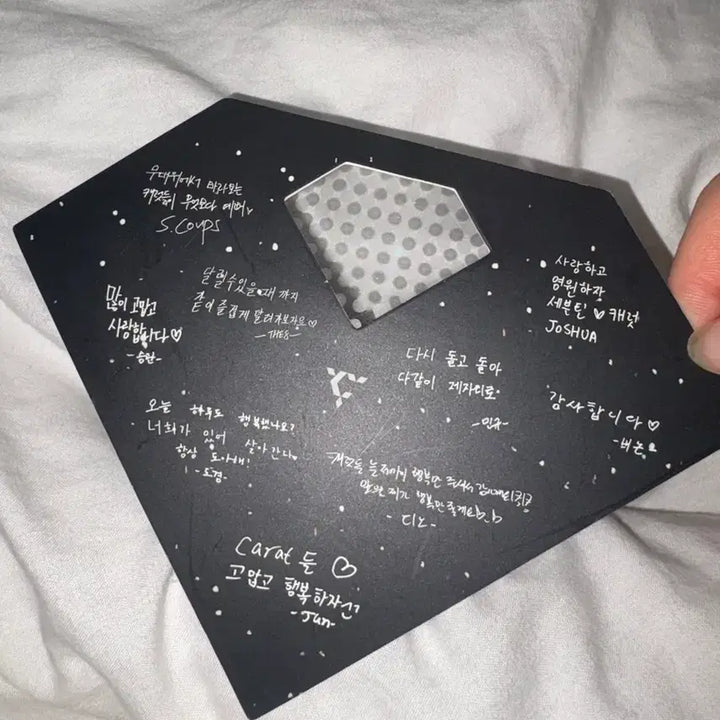 무대위에서 바라보는
캐럿들이 무엇보다 예뻐
S.COUPS
달릴 수 있을 때 까지
같이 즐겁게 달려가보자요♡
-THE8-
많이 고맙고
사랑합니다♡
-승관-
사랑하고
영원하자
세븐틴 ♡ 캐럿
JOSHUA
다시 돌고 돌아
다같이 제자리로
-민규-
감사합니다♡
-버논
오늘 하루도 행복했나요?
너희가 있어 살아간다
항상 도아해!
-도겸-
행복만
행복만
-디노-
Carat 들 ♡
고맙고 행복하자
-Jun-